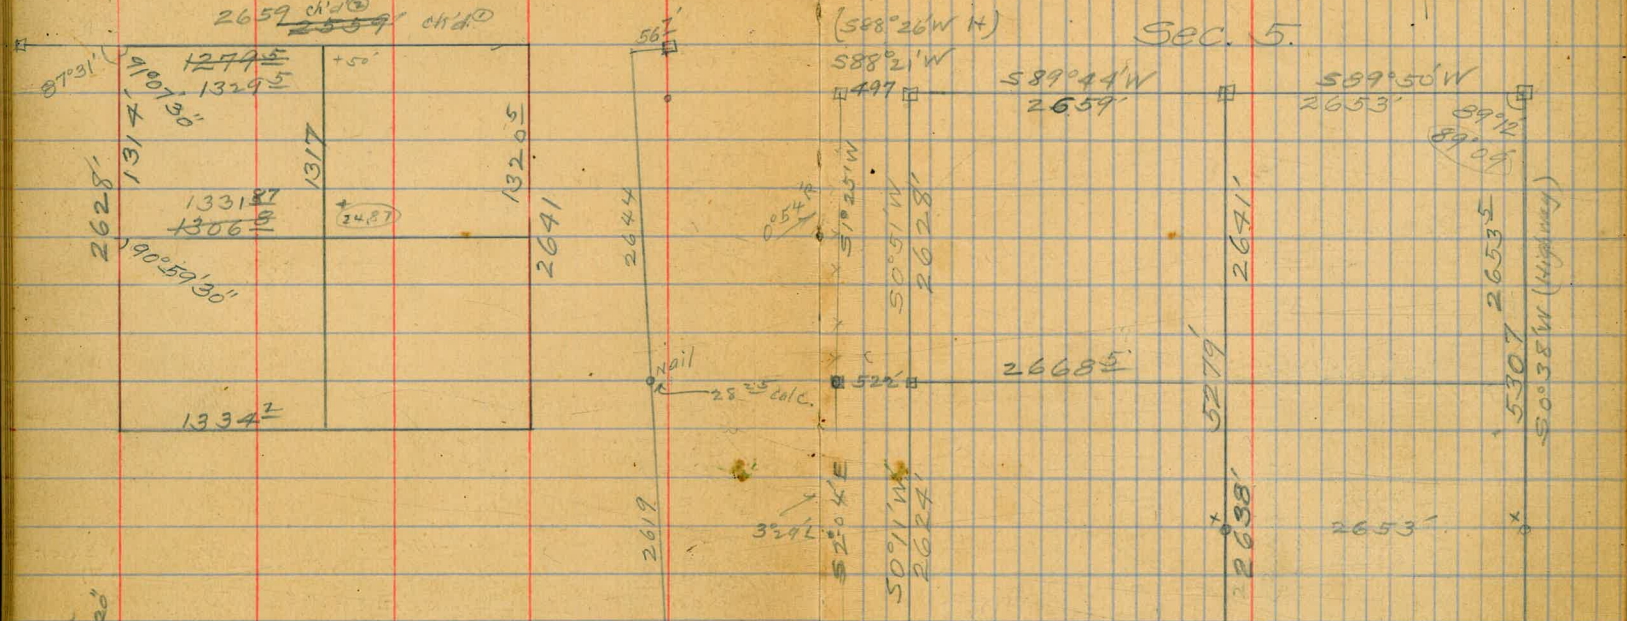 2659 ch'd② 2559' ch'd①
87°31'
91°07'30"
1279⁵
1329⁵
+50'
1314'
1317
1320⁵
2628'
1331⁸⁷
1306⁸
+
24.87
90°59'30"
2641
1334²
56⁷'
2644
Nail
28²⁵ calc.
2619
20"
(S88°26'W H)
S88°21'W
497
Sec. 5.
S89°44'W
2659'
S89°50'W
2653'
89°12'
89°09'
0°54'R
S1°25'W
S0°51'W
2628'
2641'
2653⁵
5307
S0°38'W (Highway)
522'
2668⁵
5279'
3°29'L
S2°04'E
S0°11'W
2624'
x
2638'
2653'
x